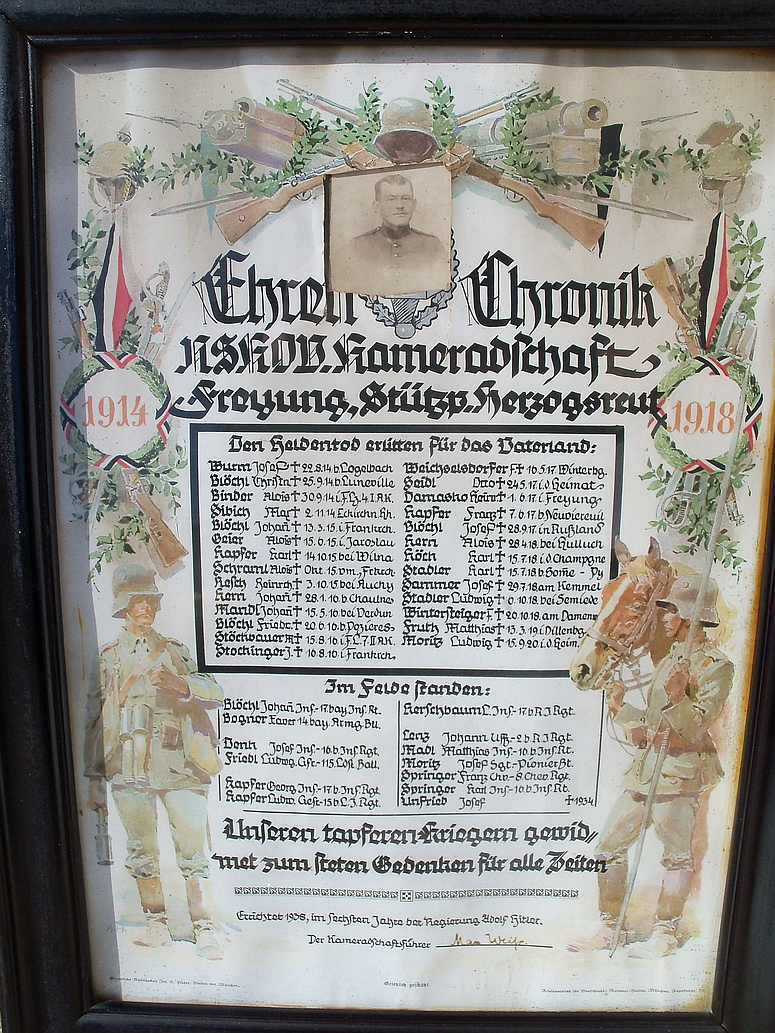 Ehren Chronik
NSKOV. Kameradschaft
Freyung, Stützp. Herzogsreut
1914
1918
Den Heldentod erlitten für das Vaterland:
Wurm Josef † 22.8.14 b. Logelbach
Blöchl Christn † 25.9.14 b. Luneville
Binder Alois † 30.9.14 i.
Sibich Max † 2.11.14
Blöchl Johañ † 13.3.15 i. Frankrch.
Geier Alois † 15.6.15 i. Jaroslau
Kapfor Karl † 14.10.15 bei Wilna
Schraml Alois † Okt. 15
Resch Heinrch † 3.10.15 bei
Kern Johañ † 28.1.16 b. Chaulnes
Mandl Johañ † 15.5.16 bei Verdun
Blöchl Friedr. † 20.6.16 b. Pozieres
Stöckbauer M † 15.8.16 i.
Stochinger J. † 16.8.16 i. Frankrch.
Weichselsdorfer F. † 10.5.17 Winterbg.
Seidl Otto † 24.5.17 i.d. Heimat
Damasko † 1.6.17 i. Freyung
Kapfer Franz † 7.6.17 b.
Blöchl Josef † 28.9.17 in Rußland
Kern Alois † 28.4.18 bei Hulluch
Köch Karl † 15.7.18 i.d. Champgne
Stadler Karl † 15.7.18 b.
Sammer Josef † 29.7.18 am Kemmel
Stadler Ludwig † 10.18 bei Semiede
Wintersteiger F. † 20.10.18 am Damenw
Fruth Matthias † 13.3.19 i. Dillenbg.
Moritz Ludwig † 15.9.20 i.d. Heim.
Im Felde standen:
Blöchl Johañ Inf.-17. bay. Inf. Rt.
Bogner Xaver 14 bay. Armg. Btl.
Denk Josef Inf.-16. b. Inf. Rgt.
Friedl Ludwg. Gft.-115. Ldst. Batl.
Kapfer Georg Inf.-17 b. Inf. Rgt.
Kapfer Ludw. Geft.-15 b. L.I. Rgt.
Kerschbaum L. Inf.-17 b. R.I. Rgt.
Lenz Johann Uff.-2 b. R.I. Rgt.
Madl Matthias Inf.-16. b. Inf. Rt.
Moritz Josef Sgt.-Pionier Bt.
Springer Franz Chv.-8 Chev. Rgt.
Springer Karl Inf.-16 b. Inf. Rt.
Unfried Josef † 1934
Unseren tapferen Kriegern gewid//
met zum steten Gedenken für alle Zeiten
Errichtet 1938, im sechsten Jahre der Regierung Adolf Hitler.
Der Kameradschaftsführer
Gesetzlich geschützt.